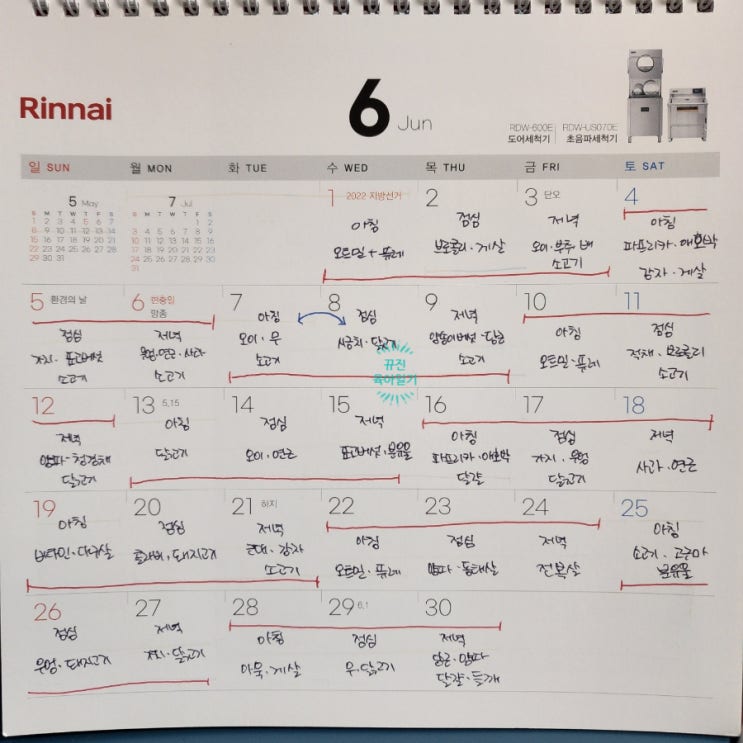 Rinnai
6 Jun
RDW-600E 도어세척기
RDW-US070E 초음파세척기
일 SUN 월 MON 화 TUE 수 WED 목 THU 금 FRI 토 SAT
5 May
S M T W T F S
1 2 3 4 5 6 7
8 9 10 11 12 13 14
15 16 17 18 19 20 21
22 23 24 25 26 27 28
29 30 31
7 Jul
S M T W T F S
1 2
3 4 5 6 7 8 9
10 11 12 13 14 15 16
17 18 19 20 21 22 23
24 25 26 27 28 29 30
31
1 2022 지방선거
아침
오트밀 + 퓨레
2
점심
브로콜리·게살
3 단오
저녁
오이·부추·배
소고기
4
아침
파프리카·애호박
감자·게살
5 환경의 날
점심
가지·표고버섯
소고기
6 현충일
망종
저녁
우엉·연근·사과
소고기
7
아침
오이·무
소고기
8
점심
시금치·닭고기
9
저녁
양송이버섯·당근
소고기
10
아침
오트밀·퓨레
11
점심
적채·브로콜리
소고기
12
저녁
양파·청경채
닭고기
13 5.15
아침
닭고기
14
점심
오이·연근
15
저녁
표고버섯·분유물
16
아침
파프리카·애호박
달걀
17
점심
가지·우엉
닭고기
18
저녁
사과·연근
19
아침
비타민·대구살
20
점심
콜라비·돼지고기
21 하지
저녁
감자
소고기
22
아침
오트밀·퓨레
23
점심
양파·동태살
24
저녁
전복살
25
아침
고구마
분유물
26
점심
우엉·돼지고기
27
저녁
닭고기
28
아침
아욱·게살
29 6.1
점심
무·닭고기
30
저녁
당근·양파
달걀·들깨
뀨진
육아일기